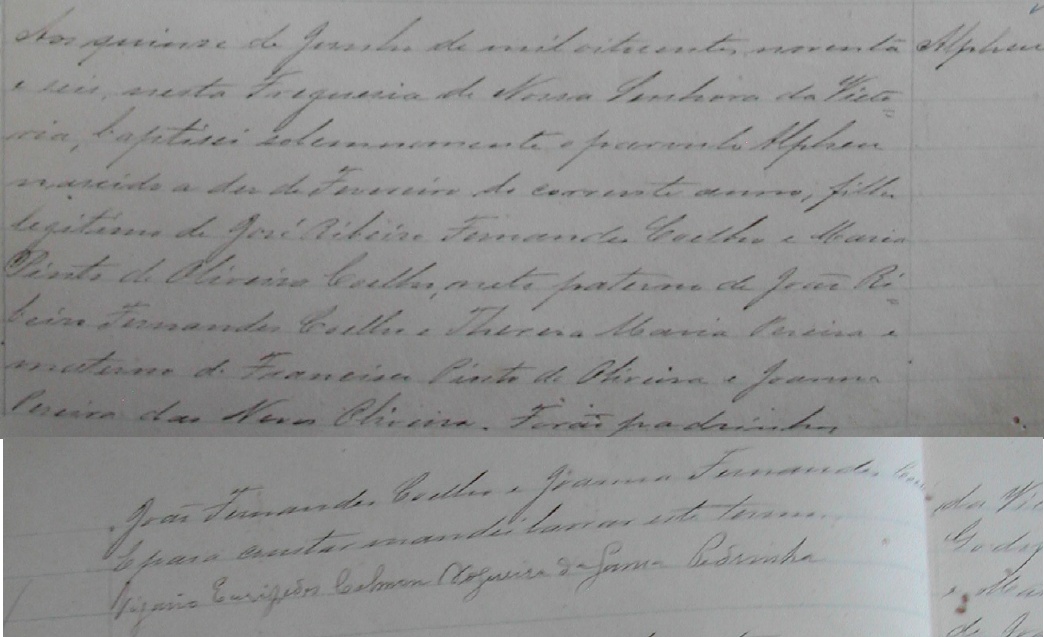 Aos quinse de Junho de mil oitocentos noventa
Alpheu
e seis, nesta Freguesia de Nossa Senhora da Victo
ria, baptisei solemnemente o parvulo Alpheu
nascido a dez de Fevereiro do corrente anno, filho
legitimo de José Ribeiro Fernandes Coelho e Maria
Pinto de Oliveira Coelho, neto paterno de João Ri
beiro Fernandes Coelho e Thereza Maria Pereira e
materno de Francisco Pinto de Oliveira e Joanna
Pereira das Neves Oliveira. Forão padrinhos
João Fernandes Coelho e Joanna Fernandes
E para constar mandei lavrar este termo.
Vigario Euripedes Calmon Nogueira da Gama
da Vic